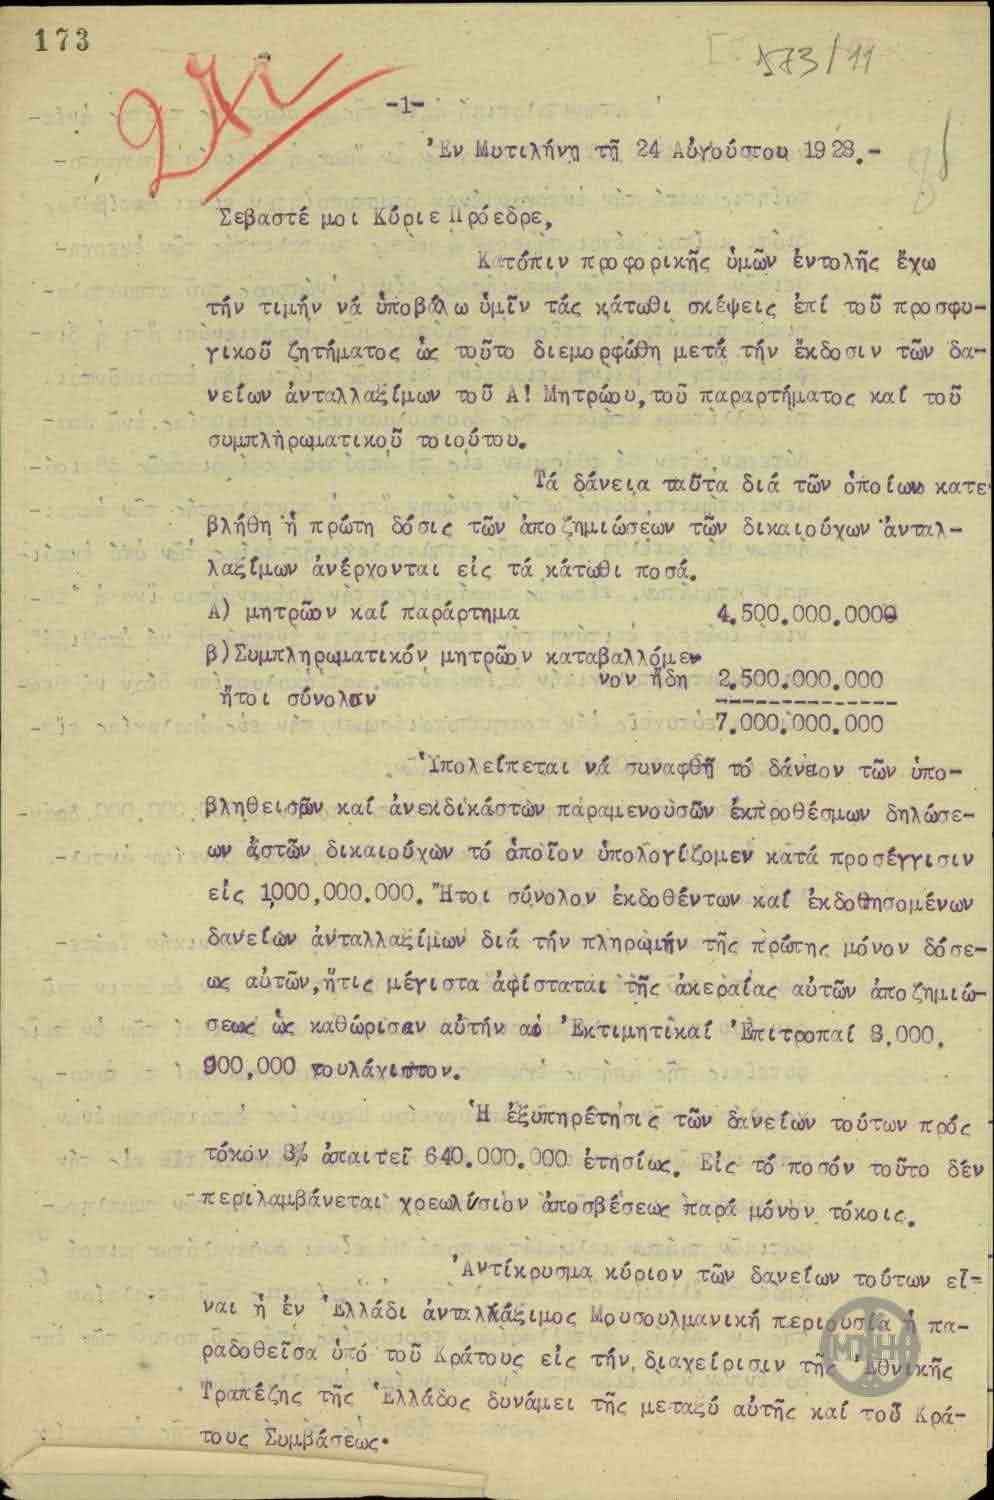 173
173/11
-1-
Ἐν Μυτιλήνῃ τῇ 24 Αὐγούστου 1928.-
Σεβαστέ μοι Κύριε Πρόεδρε,
Κατόπιν προφορικῆς ὑμῶν ἐντολῆς ἔχω
τήν τιμήν νά ὑποβάλω ὑμῖν τάς κάτωθι σκέψεις ἐπί τοῦ προσφυ-
γικοῦ ζητήματος ὡς τοῦτο διεμορφώθη μετά τήν ἔκδοσιν τῶν δα-
νείων ἀνταλλαξίμων τοῦ Α! Μητρώου, τοῦ παραρτήματος καί τοῦ
συμπληρωματικοῦ τοιούτου.
Τά δάνεια ταῦτα διά τῶν ὁποίων κατε
βλήθη ἡ πρώτη δόσις τῶν ἀποζημιώσεων τῶν δικαιούχων ἀνταλ-
λαξίμων ἀνέρχονται εἰς τά κάτωθι ποσά.
Α) μητρῶον καί παράρτημα 4.500.000.000
β) Συμπληρωματικόν μητρῶον καταβαλλόμε-
νον ἤδη 2.500.000.000
ἤτοι σύνολον
7.000.000.000
Ὑπολείπεται νά συναφθῇ τό δάνειον τῶν ὑπο-
βληθεισῶν καί ἀνεκδικάστων παραμενουσῶν ἐκπροθέσμων δηλώσε-
ων ἀστῶν δικαιούχων τό ὁποῖον ὑπολογίζομεν κατά προσέγγισιν
εἰς 1.000.000.000. Ἤτοι σύνολον ἐκδοθέντων καί ἐκδοθησομένων
δανείων ἀνταλλαξίμων διά τήν πληρωμήν τῆς πρώτης μόνον δόσε-
ως αὐτῶν, ἥτις μέγιστα ἀφίσταται τῆς ἀκεραίας αὐτῶν ἀποζημιώ-
σεως ὡς καθώρισαν αὐτήν αἱ Ἐκτιμητικαί Ἐπιτροπαί 8.000.
000.000 τουλάχιστον.
Ἡ ἐξυπηρέτησις τῶν δανείων τούτων πρός
τόκον 8% ἀπαιτεῖ 640.000.000 ἐτησίως. Εἰς τό ποσόν τοῦτο δέν
περιλαμβάνεται χρεωλύσιον ἀποσβέσεως παρά μόνον τόκοις.
Ἀντίκρυσμα κύριον τῶν δανείων τούτων εἶ-
ναι ἡ ἐν Ἑλλάδι ἀνταλλάξιμος Μουσουλμανική περιουσία ἡ πα-
ραδοθεῖσα ὑπό τοῦ Κράτους εἰς τήν διαχείρισιν τῆς Ἐθνικῆς
Τραπέζης τῆς Ἑλλάδος δυνάμει τῆς μεταξύ αὐτῆς καί τοῦ Κρά-
τους Συμβάσεως.